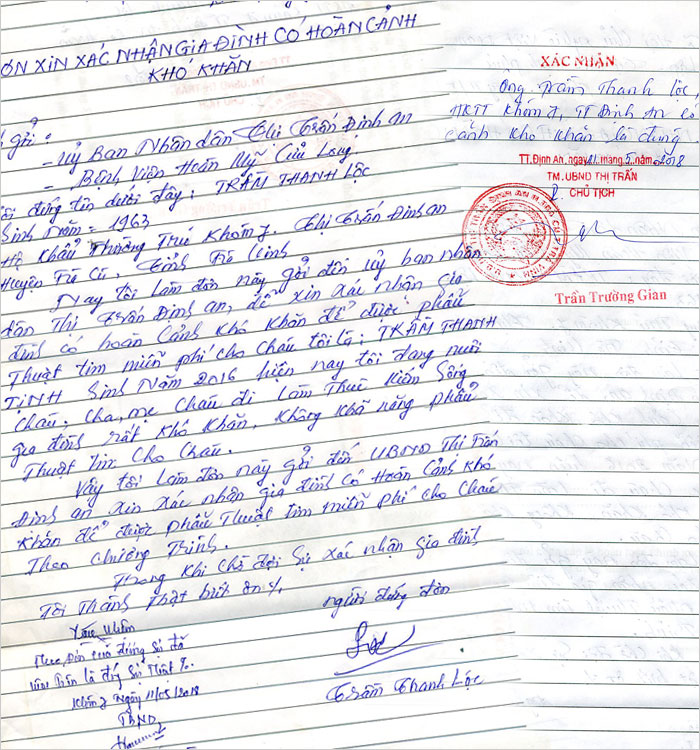 ƠN XIN XÁC NHẬN GIA ĐÌNH CÓ HOÀN CẢNH
KHÓ KHĂN
gửi :
- Uỷ Ban Nhân dân Thị Trấn Định an
- Bệnh Viện Hoàn Mỹ Cửu Long
Tôi đứng tên dưới đây : TRẦM THANH LỘC
Sinh Năm = 1963
Hộ Khẩu Thường Trú Khóm 7. Thị Trấn Định an
Huyện Trà Cú, Tỉnh Trà Vinh
Nay tôi Làm đơn này gởi đến uỷ ban nhân
dân Thị Trấn Định an, để xin xác nhận gia
đình có hoàn Cảnh Khó Khăn để được phẩu
Thuật tim miễn phí cho Cháu tôi là : TRẦM THANH
TỊNH Sinh Năm 2016 hiện nay tôi đang nuôi
Cháu, Cha, mẹ Cháu đi Làm Thuê Kiếm Sống
gia đình rất Khó Khăn, Không Khả năng phẩu
Thuật tim Cho Cháu.
Vậy tôi Làm đơn này gởi đến UBND Thị Trấn
Định an Xin Xác nhận gia đình có Hoàn Cảnh Khó
Khăn để được phẩu Thuật tim miễn phí cho Cháu
Theo Chương Trình.
Trong Khi Chờ đợi Sự Xác nhận gia đình
Tôi Thành Thật biết ơn ./.
người đứng đơn
Trầm Thanh Lộc
Xác Nhận
là đúng Sự Thật
Khóm 7 Ngày 11/05/2018
TBND
XÁC NHẬN
Ông Trầm Thanh Lộc,
HKTT Khóm 7, TT Định An có
cảnh khó khăn là đúng
TT. Định An, ngày 11 tháng 5 năm 2018
TM. UBND THỊ TRẤN
CHỦ TỊCH
Trần Trường Gian